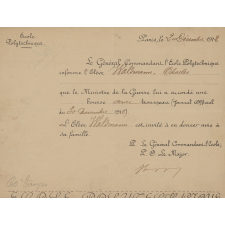 Ecole
Polytechnique.
Paris, le Décembre 191
Le Général Commandant l'Ecole Polytechnique
informe l'Elève Waldmann, Charles
que le Ministre de la Guerre lui a accordé une
bourse avec trousseau (Journal Officiel
du Décembre 191).
L'Elève Waldmann est invité à en donner avis à
sa famille.
P. Le Général Commandant l'Ecole,
Le Major,